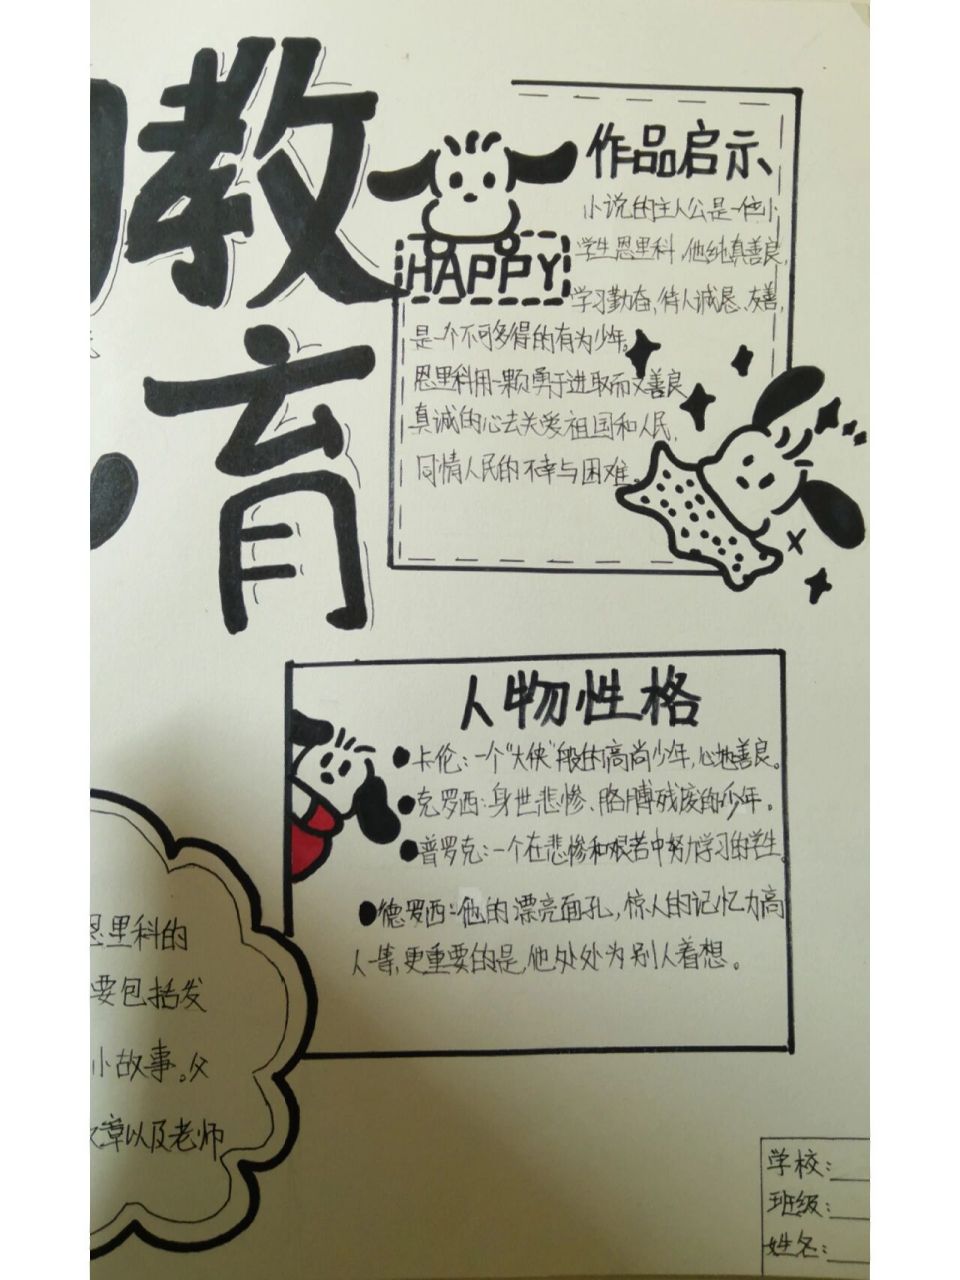 教
育
作品启示
小说的主人公是一他小
学生恩里科,他纯真善良,
HAPPY
学习勤奋,待人诚恳、友善,
是一个不可多得的有为少年。
恩里科用一颗勇于进取而又善良
真诚的心去关爱祖国和人民,
同情人民的不幸与困难。
人物性格
卡伦:一个“大侠”般的高尚少年,心地善良。
克罗西:身世悲惨、胳膊残废的少年。
普罗克:一个在悲惨和艰苦中努力学习的学生
德罗西:他的漂亮面孔,惊人的记忆力高
人一等,更重要的是,他处处为别人着想。
恩里科的
要包括发
小故事。父
文章以及老师
学校:
班级:
姓名: